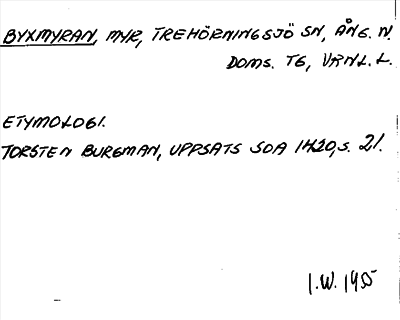 BYXMYRAN, MYR, TREHÖRNINGSJÖ SN, ÅNG. N.
DOMS. TG, VRNL. L.
ETYMOLOGI.
TORSTEN BURGMAN, UPPSATS SOA 1420, S. 21.
I.W. 1955